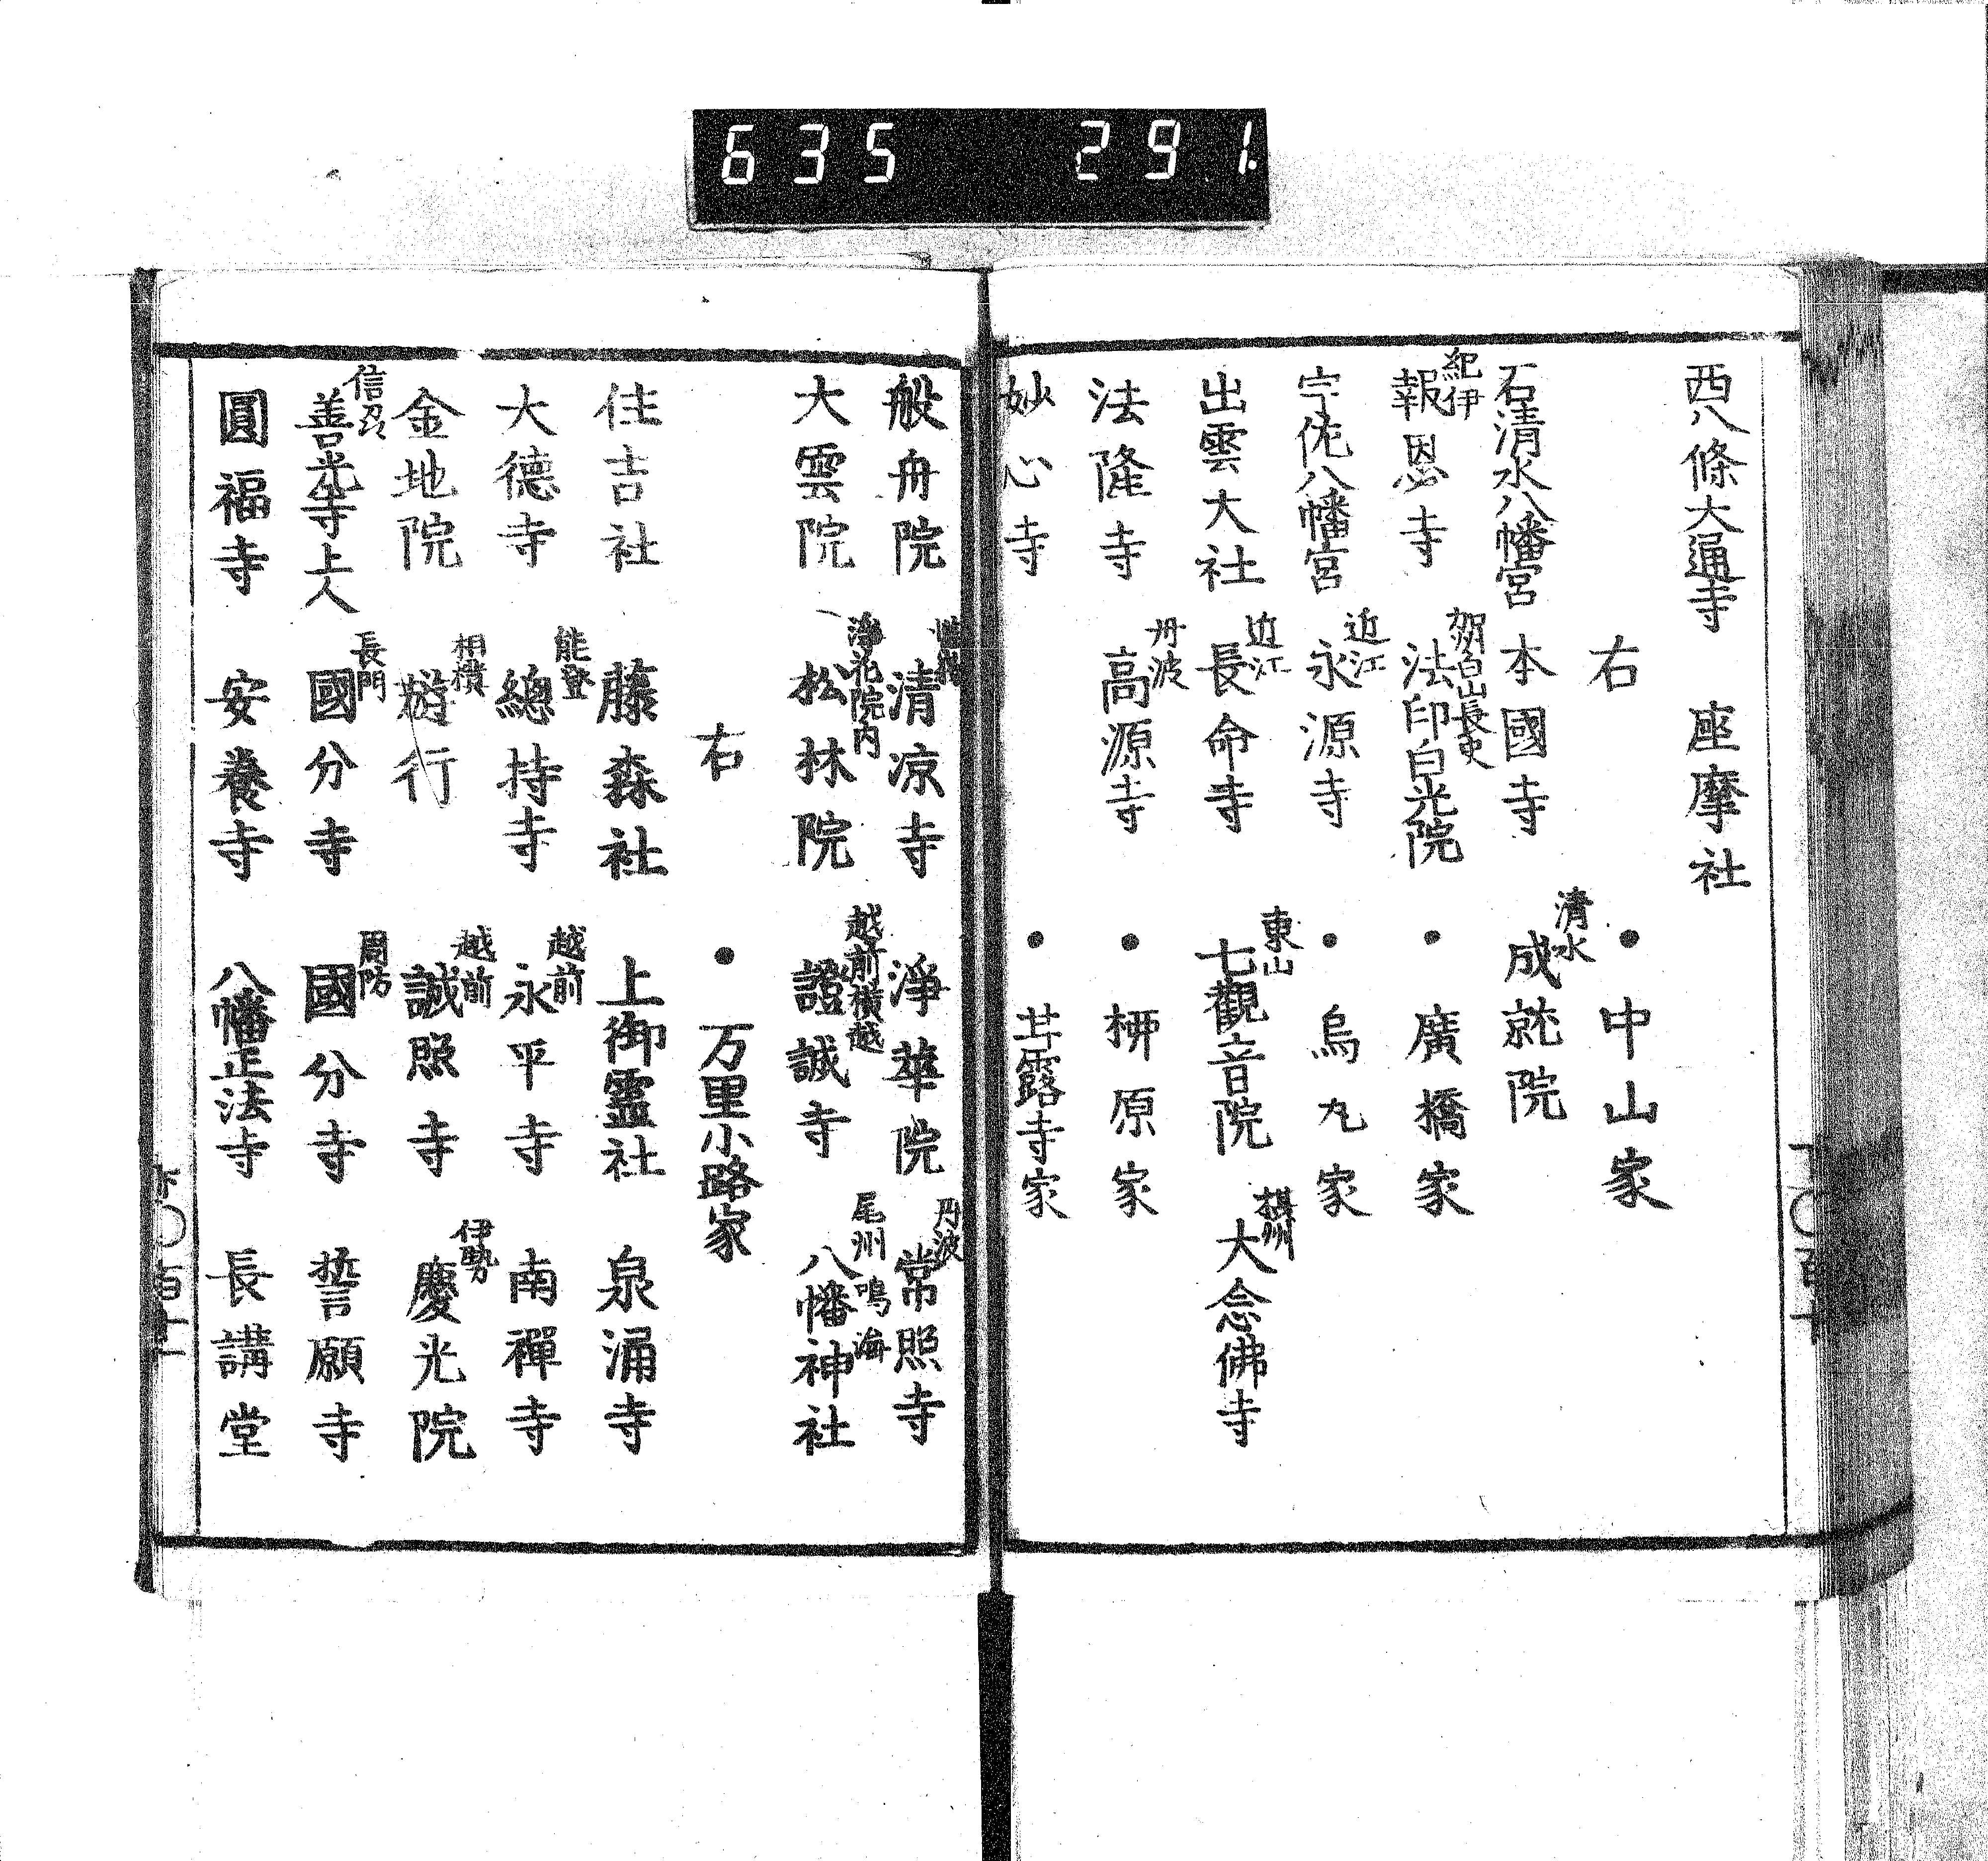 635 291.
西八條大通寺 座摩社
右 ●中山家
石清水八幡宮 本國寺 清水 成就院
紀伊 報恩寺 賀州白山長吏 法印白光院 ●廣橋家
宇佐八幡宮 近江 永源寺 ●烏丸家
出雲大社 近江 長命寺 東山 七觀音院 摂州 大念佛寺
法隆寺 丹波 高源寺 ●栁原家
妙心寺 ●甘露寺家
般舟院 嵯峨 清凉寺 淨華院 丹波 常照寺
大雲院 淨花院内 松林院 越前横越 證誠寺 尾州鳴海 八幡神社
右 ●万里小路家
住吉社 藤森社 上御靈社 泉涌寺
大德寺 能登 總持寺 越前 永平寺 南禪寺
金地院 相摸 遊行 越前 誠照寺 伊勢 慶光院
信刕 善光寺上人 長門 國分寺 周防 國分寺 誓願寺
圓福寺 安養寺 八幡正法寺 長講堂